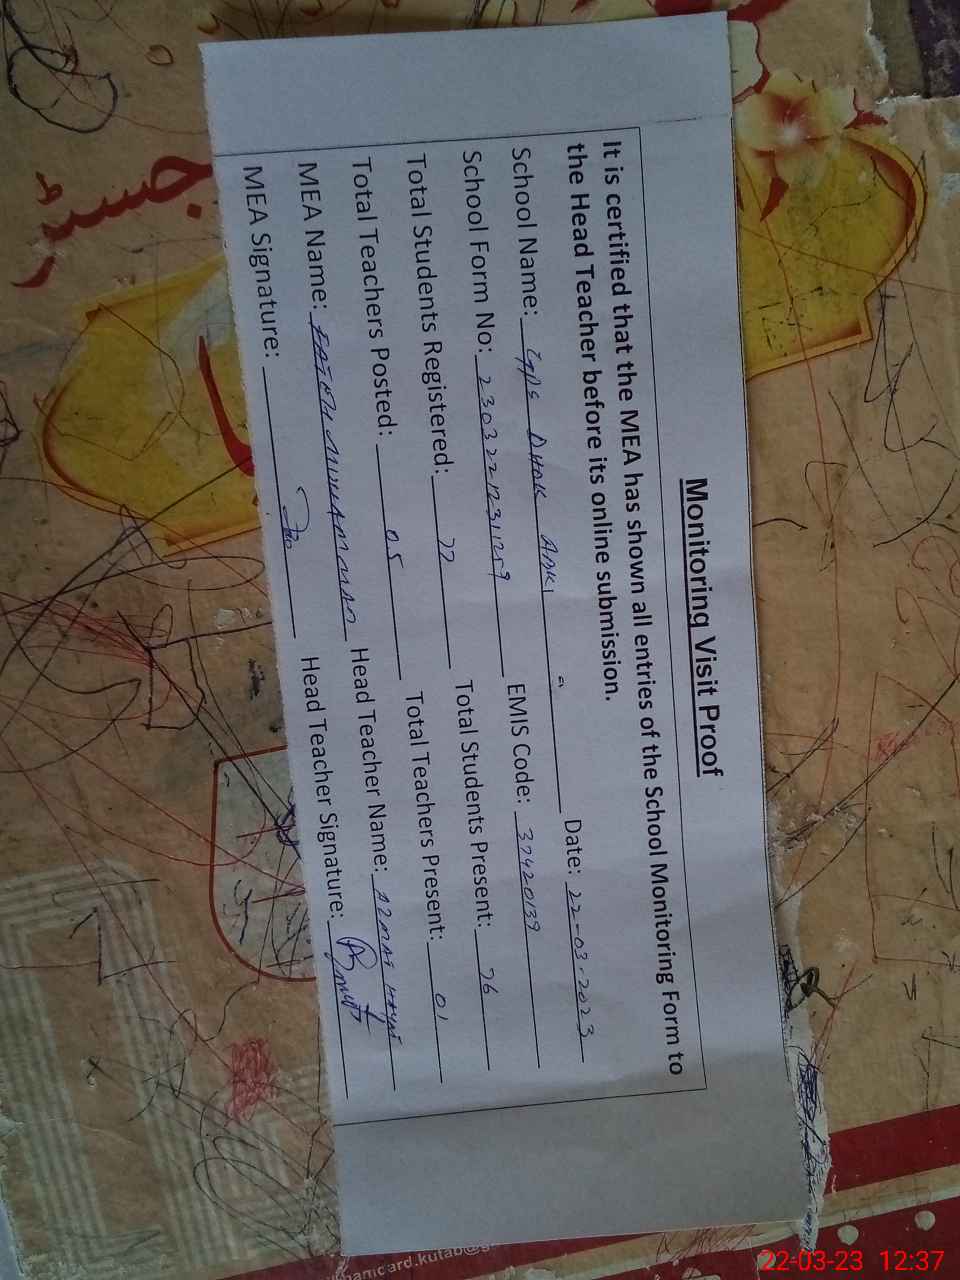 Monitoring Visit Proof
It is certified that the MEA has shown all entries of the School Monitoring Form to
the Head Teacher before its online submission.
School Name: GPS DHOK ADKI Date: 22-03-2023
School Form No: EMIS Code: 37420139
Total Students Registered: 77 Total Students Present: 76
Total Teachers Posted: 05 Total Teachers Present: 01
MEA Name: MUHAMMAD Head Teacher Name:
MEA Signature: Head Teacher Signature:
22-03-23 12:37